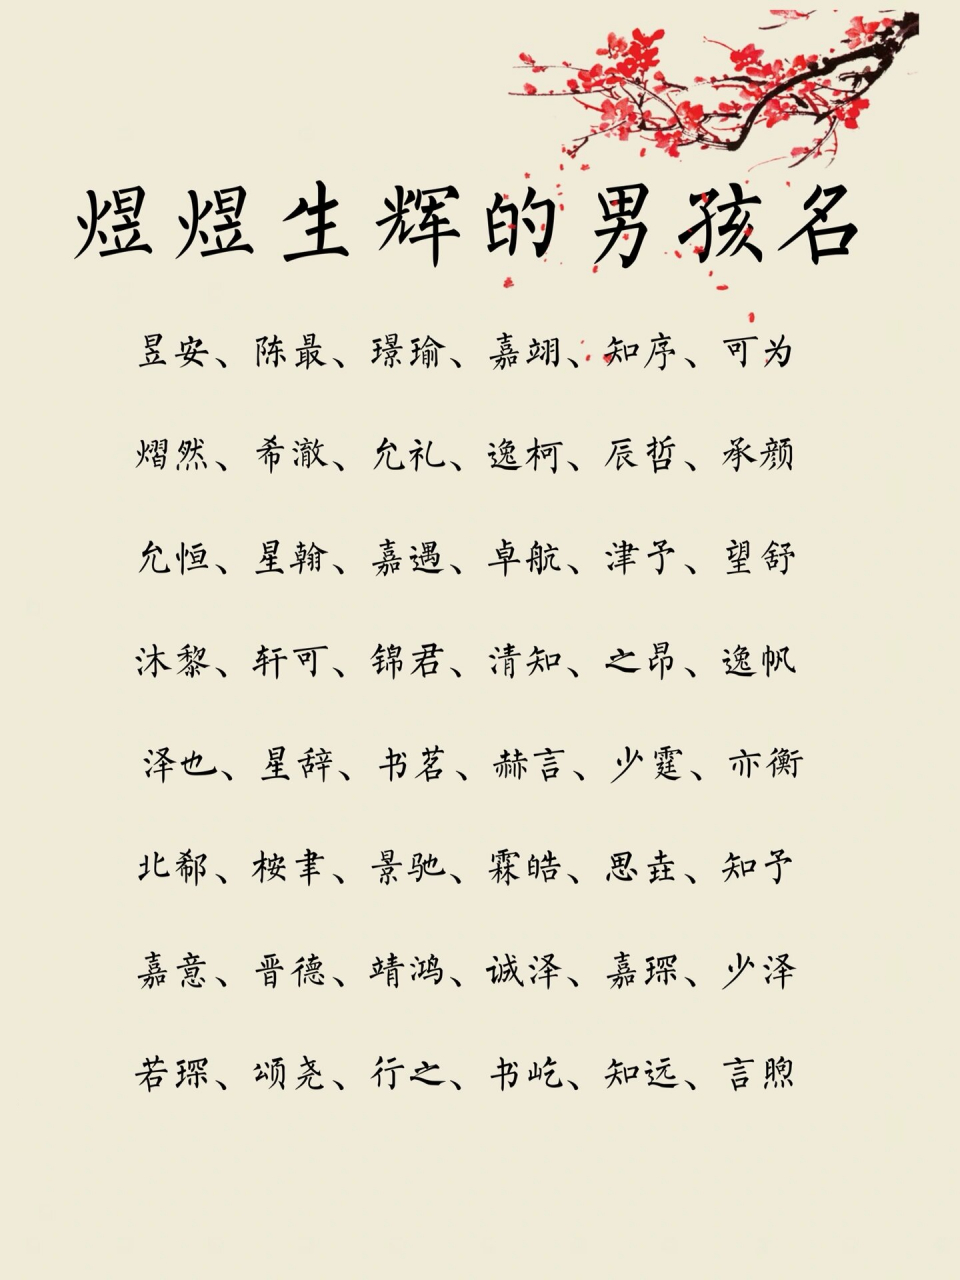 煜煜生辉的男孩名
昱安、陈最、璟瑜、嘉翊、知序、可为
熠然、希澈、允礼、逸柯、辰哲、承颜
允恒、星翰、嘉遇、卓航、津予、望舒
沐黎、轩可、锦君、清知、之昂、逸帆
泽也、星辞、书茗、赫言、少霆、亦衡
北郗、桉聿、景驰、霖皓、思垚、知予
嘉意、晋德、靖鸿、诚泽、嘉琛、少泽
若琛、颂尧、行之、书屹、知远、言煦